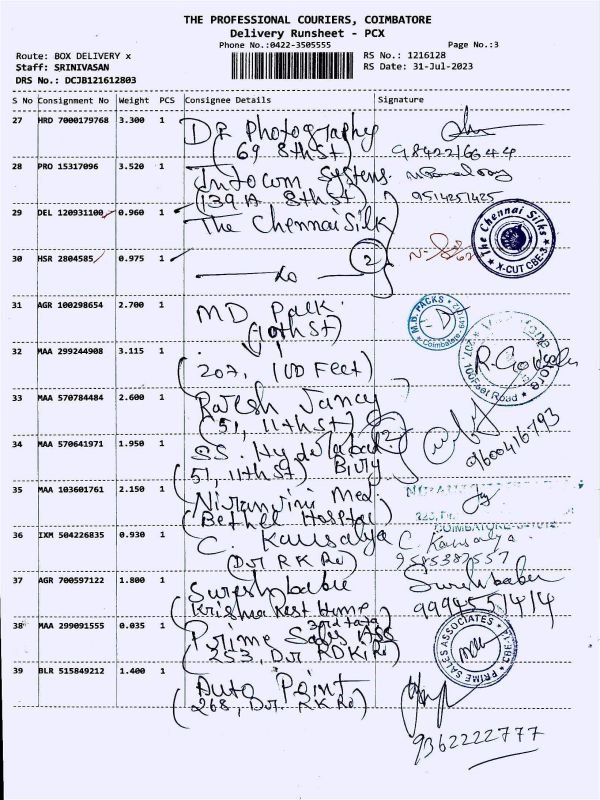 THE PROFESSIONAL COURIERS, COIMBATORE
Delivery Runsheet - PCX
Phone No.:0422-3505555
Page No.:3
Route: BOX DELIVERY x
Staff: SRINIVASAN
DRS No.: DCJB121612803
RS No.: 1216128
RS Date: 31-Jul-2023
S No Consignment No Weight PCS Consignee Details Signature
27 HRD 7000179768 3.300 1 DR Photography
(69 8th St)
28 PRO 15317096 3.520 1 Intocom Systems.
(139 A 8th St) 9514251425
29 DEL 120931100 0.960 1 The Chennai Silk
The Chennai Silks
X-CUT CBE-3
30 HSR 2804585 0.975 1 Do 2
31 AGR 100298654 2.700 1 MD Pack.
(10th St)
M.D. PACKS
Coimbatore
32 MAA 299244908 3.115 1
(207, 100 Feet)
100Feet Road
33 MAA 570784484 2.600 1 Rajesh Fancy
(51, 11th St)
34 MAA 570641971 1.950 1 SS. Hyderabad
(51, 11th St) Biry 2
9600416793
35 MAA 103601761 2.150 1 Niranjini Med.
(Bethel Hospital)
COIMBATORE
36 IXM 504226835 0.930 1 C. Kausalya C. Kausalya.
(Dr. R K Rd) 9585387557
37 AGR 700597122 1.800 1 Sureshbabu Sureshbabu
(Krishna Rest Home 9994551414
3rd
38 MAA 299091555 0.035 1 Prime Sales Ass
(253, Dr. R D K Rd)
PRIME SALES ASSOCIATES
39 BLR 515849212 1.400 1 Auto Point
(268, Dr. R K Rd)
9362222777